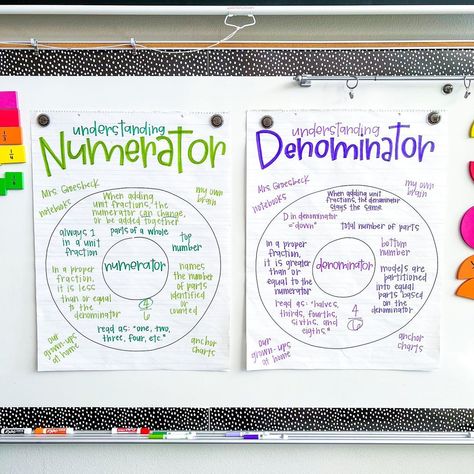 understanding
Numerator
Mrs Groesbeck
my own
brain
notebooks
When adding
unit fractions, the
numerator can change,
or be added together
always 1
in a unit
fraction
parts of a whole
top
number
numerator
In a proper
fraction,
it is less
than or equal
to the
denominator
names
the number
of parts
identified
or
counted
4
6
read as: "one, two,
three, four, etc."
our
grown-ups
at home
anchor
charts
understanding
Denominator
Mrs Groesbeck
my own
brain
notebooks
When adding unit
fractions, the denominator
stays the same
D in denominator
= "down"
total number of parts
In a proper
fraction,
it is greater
than or
equal to the
numerator
bottom
number
denominator
models are
partitioned
into equal
parts based
on the
denominator
read as: "halves,
thirds, fourths,
sixths, and
eigths."
4
6
our
grown-ups
at home
anchor
charts